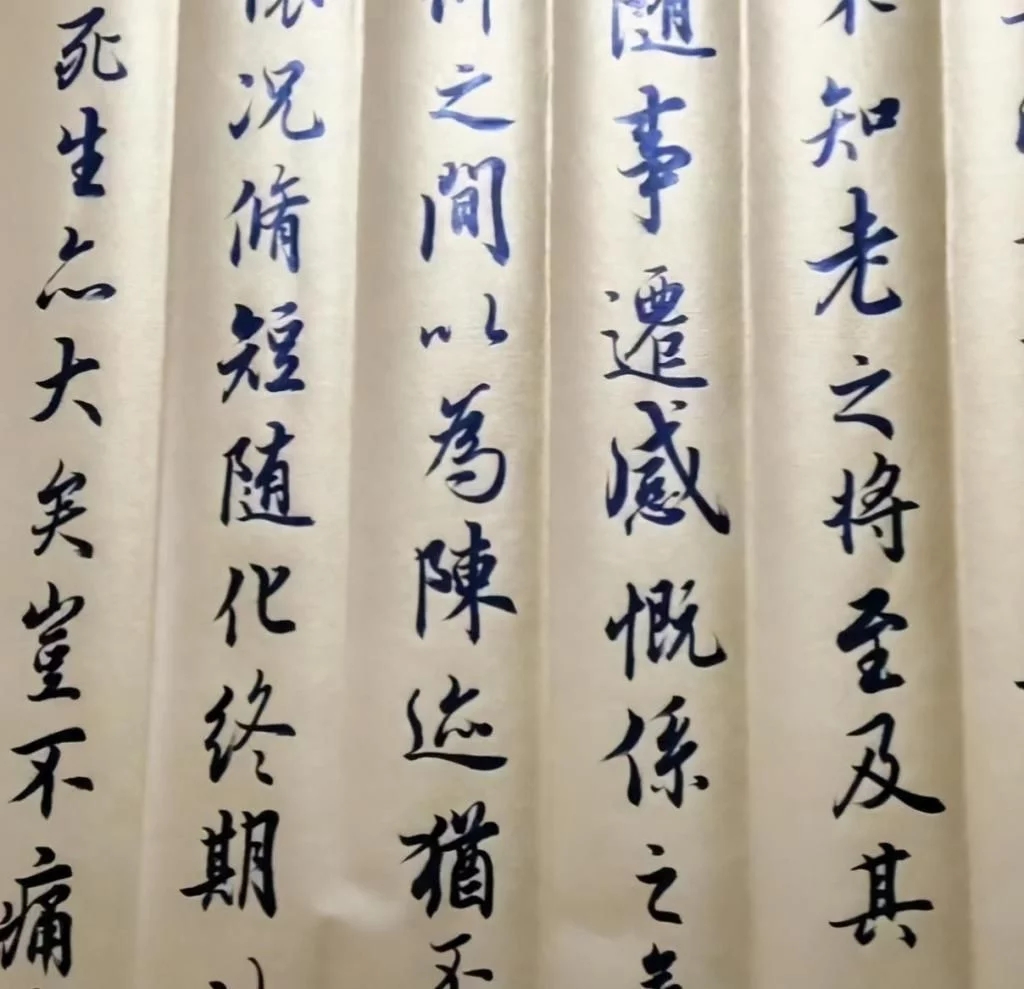 不知老之将至及其
随事遷感慨係之
之間以為陳迹猶不
况脩短随化終期
死生亦大矣豈不痛